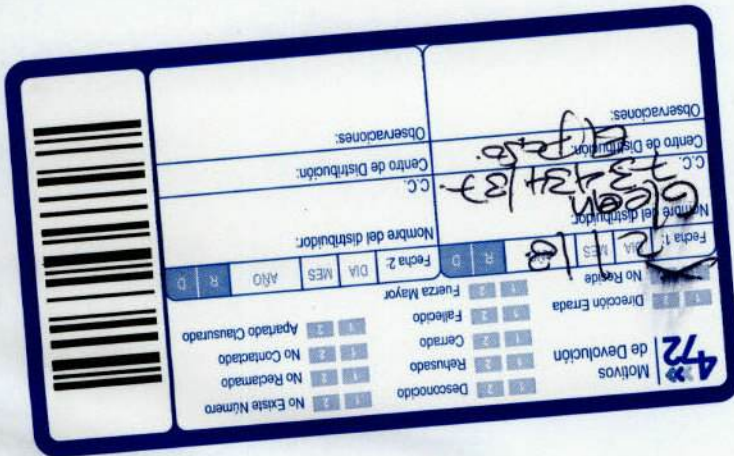 472
Motivos
de Devolución
1 2 Desconocido
1 2 Rehusado
1 2 Cerrado
1 2 Fallecido
1 2 Fuerza Mayor
1 2 No Existe Número
1 2 No Reclamado
1 2 No Contactado
1 2 Apartado Clausurado
1 2 Dirección Errada
No Reside
Fecha 1: DIA MES AÑO R D
Nombre del distribuidor:
C.C.
Centro de Distribución:
Observaciones:
Fecha 2: DIA MES AÑO R D
Nombre del distribuidor:
C.C.
Centro de Distribución:
Observaciones: